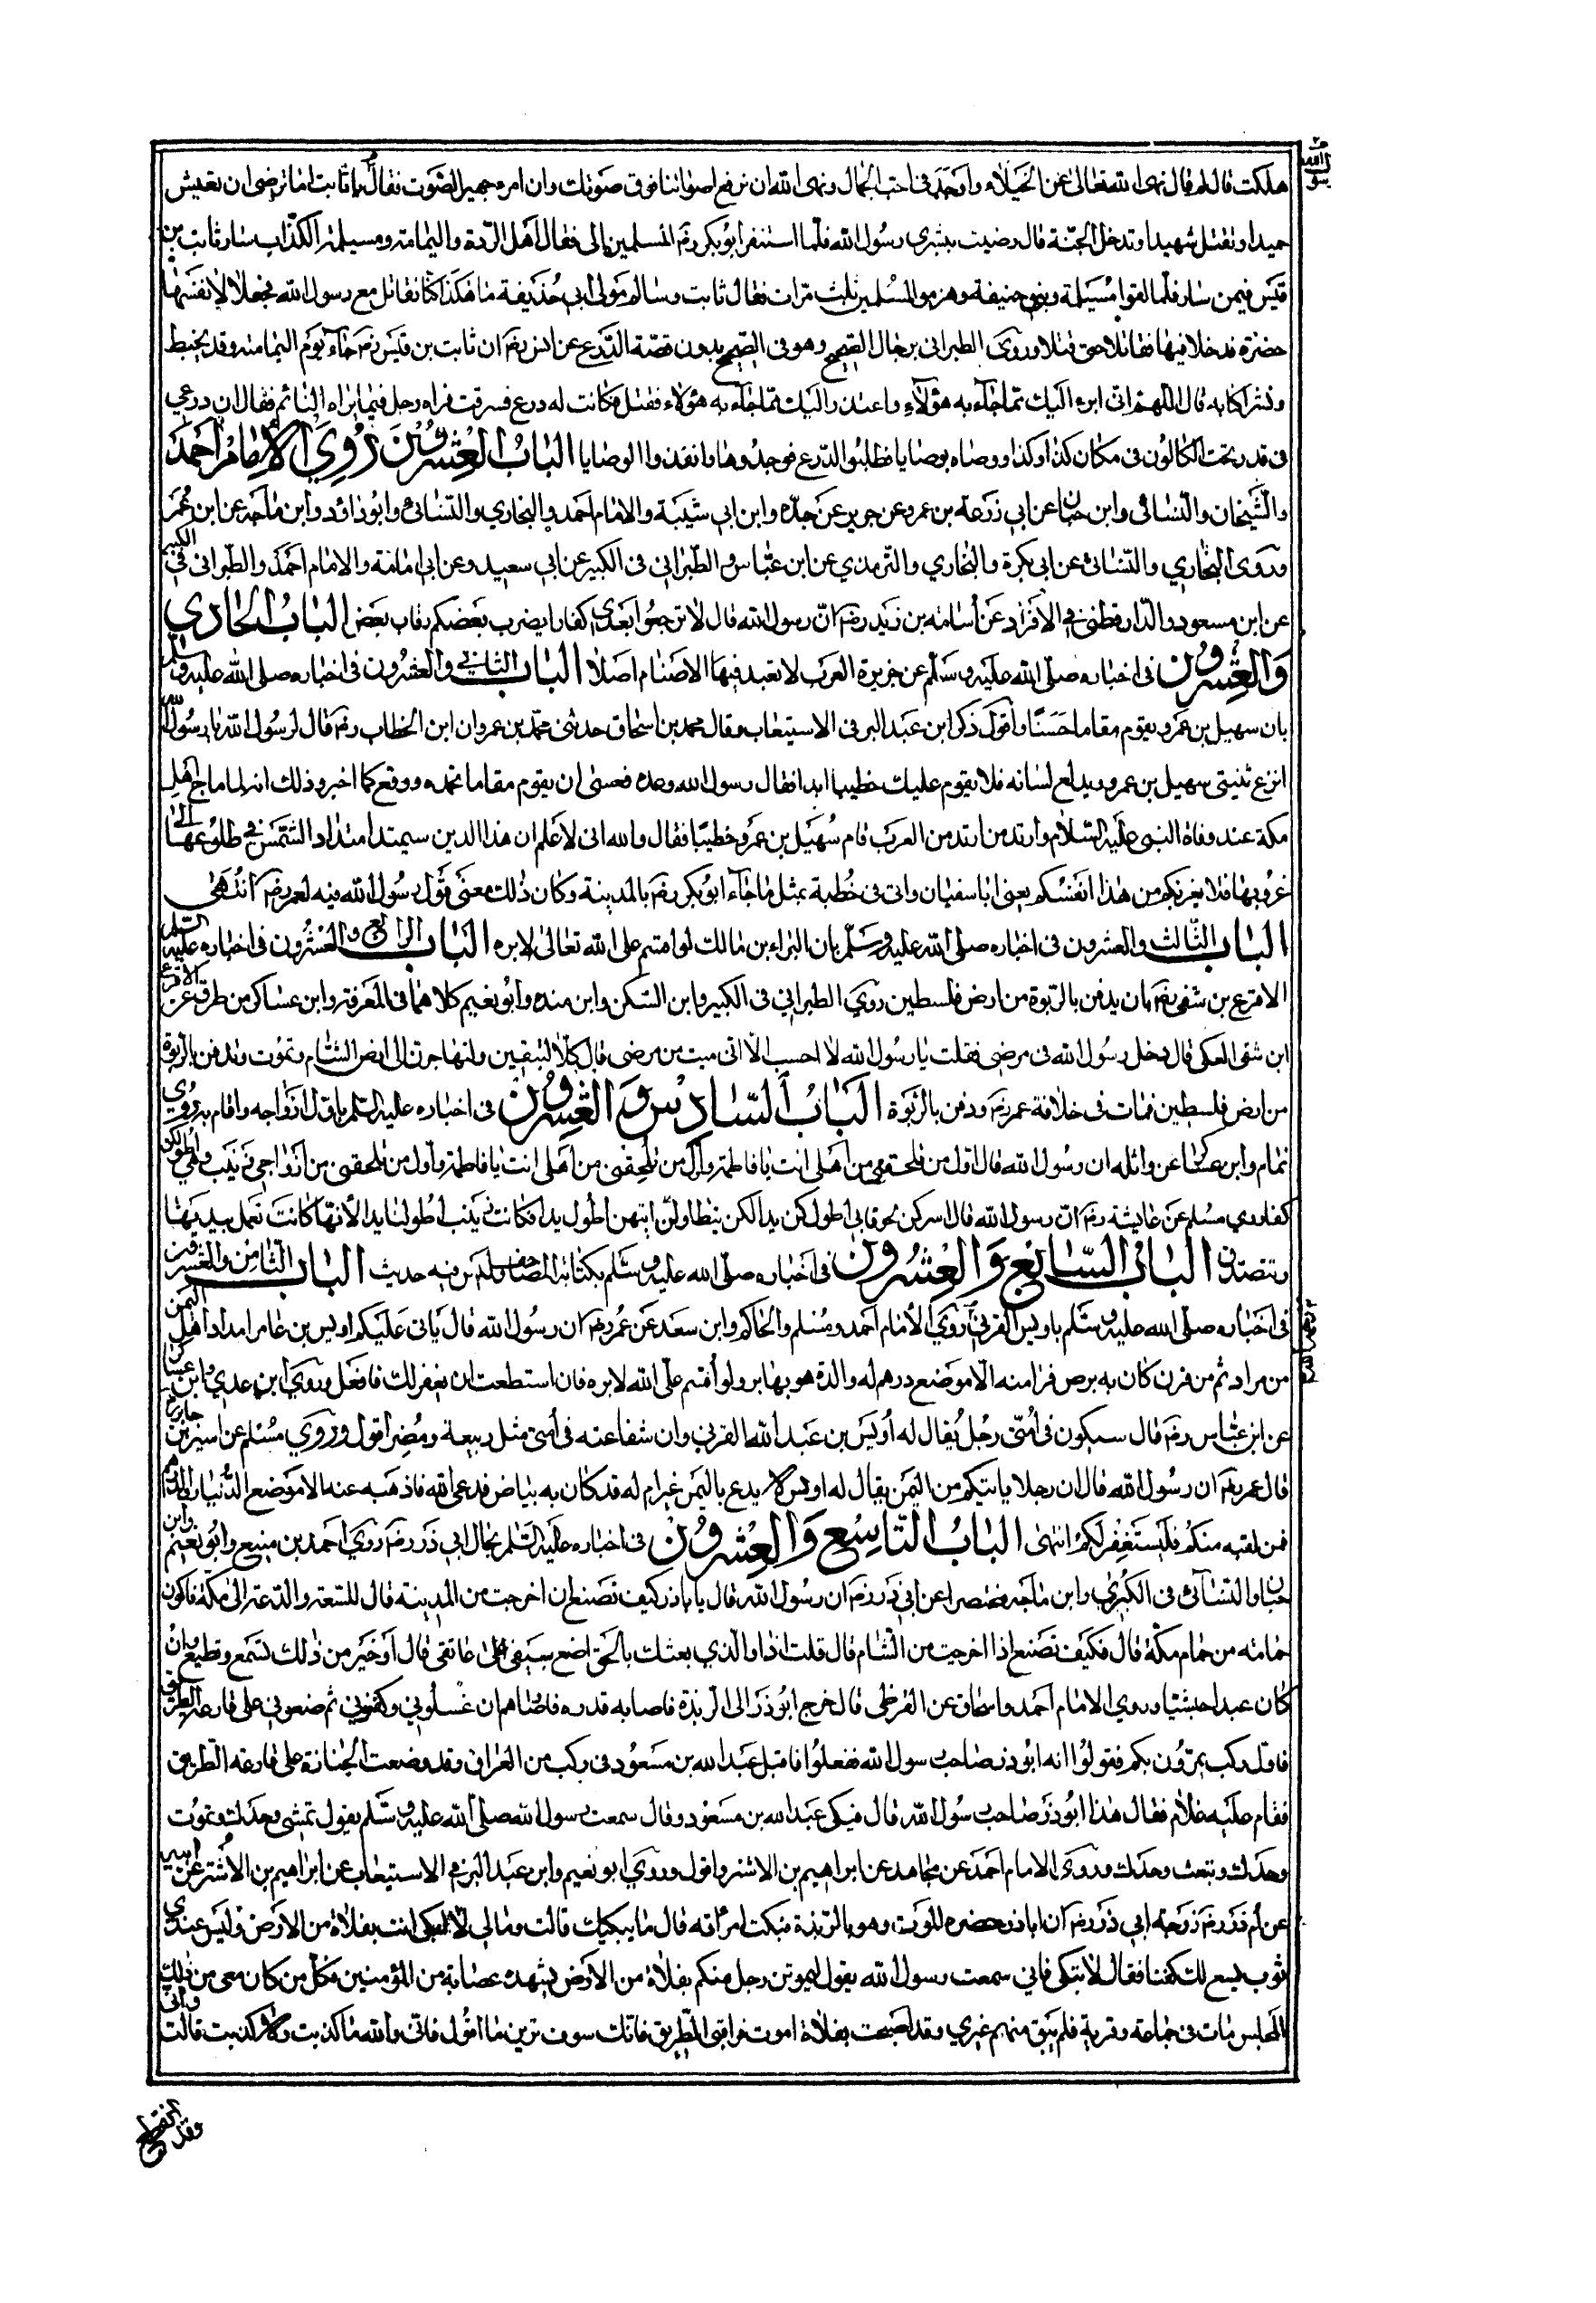 هلكت قال له قال نهى الله تعالى عن الخيلاء واوجد فى احب الجمال ونهى الله ان نرفع اصواتنا فوق صوتك وان امرء جهير الصوت فقال يا ثابت اما ترضى ان تعيش
حميدا وتقتل شهيدا وتدخل الجنة قال رضيت ببشرى رسول الله فلما استنفر ابو بكر رضه المسلمين الى فقال اهل الردة واليمامة ومسيلمة الكذاب سار ثابت بن
قيس فيمن سار فلما لقوا مسيلمة وبنى حنيفة وهزموا المسلمين ثلث مرات فقال ثابت وسالم مولى ابى حذيفة ما هكذا كنا نقاتل مع رسول الله فجعلا لانفسهما
حضرة فدخلا فيها فقاتلا حتى قتلا وروى الطبرانى برجال الصحيح وهو فى الصحيح بدون قصة الدرع عن انس رضه ان ثابت بن قيس رضه جاء يوم اليمامة وقد تحنط
ونشر اكفانه قال اللهم انى ابرء اليك مما جاء به هؤلاء واعتذر اليك مما جاء به هؤلاء فقتل وكانت له درع فسرقت فراه رجل فيما يراه النائم فقال ان درعي
فى قدر تحت الكانون فى مكان كذا وكذا ووصاه بوصايا فطلبوا الدرع فوجدوها وانفذوا الوصايا الباب العشرون روي الامام احمد
والشيخان والنسائى وابن حبان عن ابي زرعة بن عمرو عن جرير عن جده وابن ابي شيبة والامام احمد والبخاري والنسائى وابو داؤد وابن ماجه عن ابن عمر
وروى البخاري والنسائى عن ابى بكرة والبخاري والترمذي عن ابن عباس والطبراني فى الكبير عن ابي سعيد وعن ابى امامة والامام احمد والطبرانى فى الكبير
عن ابن مسعود والدارقطني في الافراد عن أسامة بن زيد رضه ان رسول الله قال لا ترجعوا بعدي كفارا يضرب بعضكم رقاب بعض الباب الحادي
والعشرون فى اخباره صلى الله عليه وسلم عن جزيرة العرب لا تعبد فيها الاصنام اصلا الباب الثاني والعشرون فى اخباره صلى الله عليه وسلم
بان سهيل بن عمرو يقوم مقاما حسنا واقول ذكر ابن عبد البر فى الاستيعاب وقال محمد بن اسحاق حدثنى محمد بن عمرو ان ابن الخطاب رضه قال لرسول الله يا رسول الله
انزع ثنيتى سهيل بن عمرو ويدلع لسانه فلا يقوم عليك خطيبا ابدا فقال رسول الله وعده فعسى ان يقوم مقاما تحمده ووقع كما اخبر وذلك انه لما ماج اهل
مكة عند وفاة النبى عليه السلام وارتد من ارتد من العرب قام سهيل بن عمرو خطيبا فقال والله انى لاعلم ان هذا الدين سيمتد امتداد الشمس في طلوعها الى
غروبها فلا يغرنكم من هذا انفسكم يعنى ابا سفيان واتى فى خطبة بمثل ما جاء ابو بكر رضه بالمدينة وكان ذلك معنى قول رسول الله فيه لعمر رضه انتهى
الباب الثالث والعشرون فى اخباره صلى الله عليه وسلم بان البراء بن مالك لو اقسم على الله تعالى لابره الباب الرابع والعشرون فى اخباره عليه السلم
الاقرع بن شفى رضه بان يدفن بالربوة من ارض فلسطين روي الطبراني فى الكبير وابن السكن وابن منده وابو نعيم كلاهما فى المعرفة وابن عساكر من طرق عن الاقرع
ابن شفى العكى قال دخل رسول الله فى مرضى فقلت يا رسول الله لا احسب الا انى ميت من مرضى قال كلا لتبقين ولتهاجرن الى ارض الشام وتموت وتدفن بالربوة
من ارض فلسطين فمات فى خلافة عمر رضه ودفن بالربوة الباب السادس والعشرون فى اخباره عليه السلم باول ازواجه واقام به روي
تمام وابن عساكر عن واثلة ان رسول الله قال اول من يلحقنى من اهلى انت يا فاطمة واول من يلحقنى من ازواجى زينب وهي اطولكن
كفا وروي مسلم عن عايشة رضه ان رسول الله قال اسرعكن لحوقا بى اطولكن يدا فكن يتطاولن ايتهن اطول يدا فكانت زينب اطولنا يدا لانها كانت تعمل بيديها
وتتصدق الباب السابع والعشرون فى اخباره صلى الله عليه وسلم بكتابة المصاحف وليس فيه حديث الباب الثامن والعشرون
فى اخباره صلى الله عليه وسلم باويس القرني روي الامام احمد ومسلم والحاكم وابن سعد عن عمر رضه ان رسول الله قال ياتى عليكم اويس بن عامر امداد اهل اليمن
من مراد ثم من قرن كان به برص فبرا منه الا موضع درهم له والدة هو بها بر ولو اقسم على الله لابره فان استطعت ان يغفر لك فافعل وروي ابن عدي وابن عساكر
عن ابن عباس رضه قال سيكون فى أمتى رجل يقال له أويس بن عبد الله القرني وان شفاعته فى أمتى مثل ربيعة ومضر اقول وروي مسلم عن اسير بن جابر
قال عمر رضه ان رسول الله قال ان رجلا ياتيكم من اليمن يقال له اويس لا يدع باليمن غير ام له قد كان به بياض فدعى الله فاذهبه عنه الا موضع الدنيار والدرهم
فمن لقيه منكم فليستغفر لكم انتهى الباب التاسع والعشرون فى اخباره عليه السلم بحال ابي ذر رضه روي احمد بن منيع وابو نعيم وابن
حبان والنسائى فى الكبرى وابن ماجه مختصرا عن ابي ذر رضه ان رسول الله قال يا با ذر كيف تصنع ان اخرجت من المدينة قال للسعة والدعة الى مكة فاكون
حمامة من حمام مكة قال فكيف تصنع اذا اخرجت من الشام قال قلت اذا والذي بعثك بالحق اضع سيفي على عاتقى قال أو خير من ذلك تسمع وتطيع وان
كان عبدا حبشيا وروي الامام احمد واسحاق عن القرظى قال خرج ابو ذر الى الربذة فاصابه قدره فاوصاهم ان غسلوني وكفنوني ثم ضعوني على قارعة الطريق
فاول ركب يمرون بكم فقولوا انه ابو ذر صاحب رسول الله ففعلوا فاقبل عبد الله بن مسعود فى ركب من العراق وقد وضعت الجنازة على قارعة الطريق
فقام عليه غلام فقال هذا ابو ذر صاحب رسول الله قال فبكى عبد الله بن مسعود وقال سمعت رسول الله صلى الله عليه وسلم يقول تمشى وحدك وتموت
وحدك وتبعث وحدك وروى الامام احمد عن مجاهد عن ابراهيم بن الاشتر واقول وروي ابو نعيم وابن عبد البر في الاستيعاب عن ابراهيم بن الاشتر عن ابيه
عن أم ذر رضه زوجة ابي ذر رضه ان ابا ذر حضره الموت وهو بالربذة فبكت امرأته قال ما يبكيك قالت ومالي لا ابكى انت بفلاة من الارض وليس عندي
ثوب يسع لك كفنا فقال لا تبكى فاني سمعت رسول الله يقول ليموتن رجل منكم بفلاة من الارض يشهده عصابة من المؤمنين فكل من كان معى من ذلك
المجلس مات فى جماعة وقرية فلم يبق منهم غيري وقد اصبحت بفلاة اموت فراقبى الطريق فانك سوف ترين ما اقول فانى والله ما كذبت ولا كذبت قالت وانى
وقد انقطع